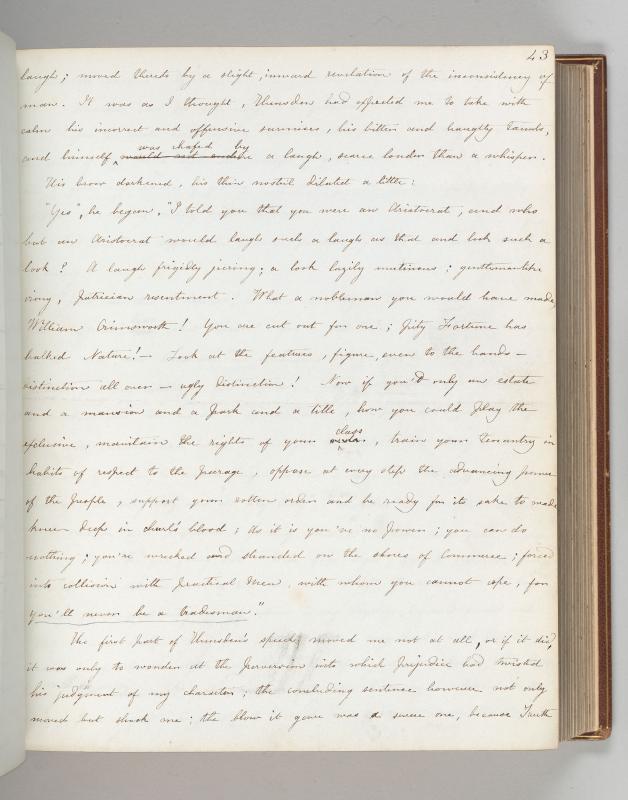 43
laugh; moved thereto by a slight, inward revelation of the inconsistency of
man. It was as I thought, Hunsden had expected me to take with
calm his incorrect and offensive surmises, his bitter and haughty taunts,
was chafed by
and himself would not endure a laugh, scarce louder than a whisper.
His brow darkened, his thin nostril dilated a little:
"Yes", he began, "I told you that you were an Aristocrat, and who
but an Aristocrat would laugh such a laugh as that and look such a
look? A laugh frigidly jeering; a look lazily mutinous; gentlemanlike
irony, Patrician resentment. What a nobleman you would have made,
William Crimsworth! You are cut out for one; Pity Fortune has
balked Nature!— Look at the features, figure, even to the hands —
distinction all over — ugly distinction! Now if you'd only an estate
and a mansion and a Park and a title, how you could play the
class
exclusive, maintain the rights of your , train your tenantry in
habits of respect to the peerage, oppose at every step the advancing power
of the People, support your rotten order and be ready for its sake to wade
knee-deep in churl's blood; As it is you've no Power; you can do
nothing; you're wrecked and stranded on the shores of Commerce; forced
into collision with Practical Men, with whom you cannot cope, for
you'll never be a tradesman."
The first part of Hunsden's speech moved me not at all, or if it did,
it was only to wonder at the perversion into which Prejudice had twisted
his judgment of my character; the concluding sentence however not only
moved but shook me; the blow it gave was a severe one, because Truth